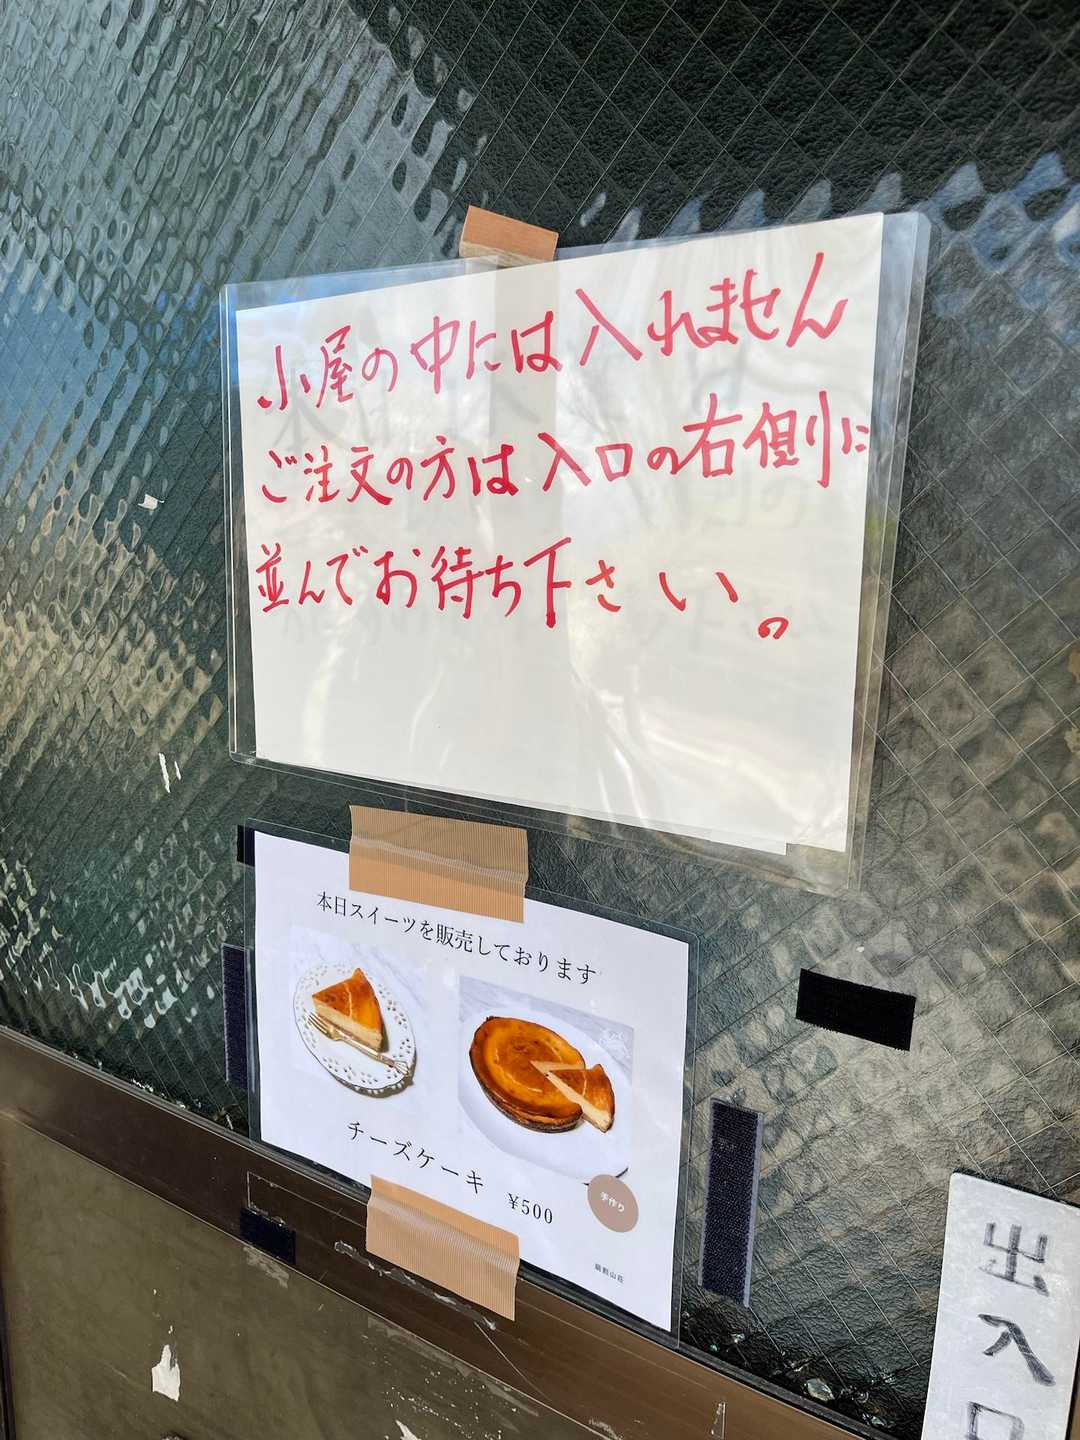 小屋の中には入れません
ご注文の方は入口の右側に
並んでお待ち下さい。
本日スイーツを販売しております
チーズケーキ ¥500
手作り
鍋割山荘
出入口